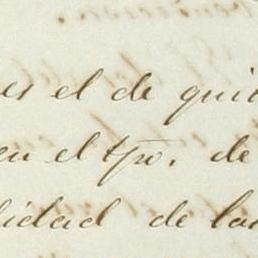 es el de quit
en el tpo. de
lidad de la